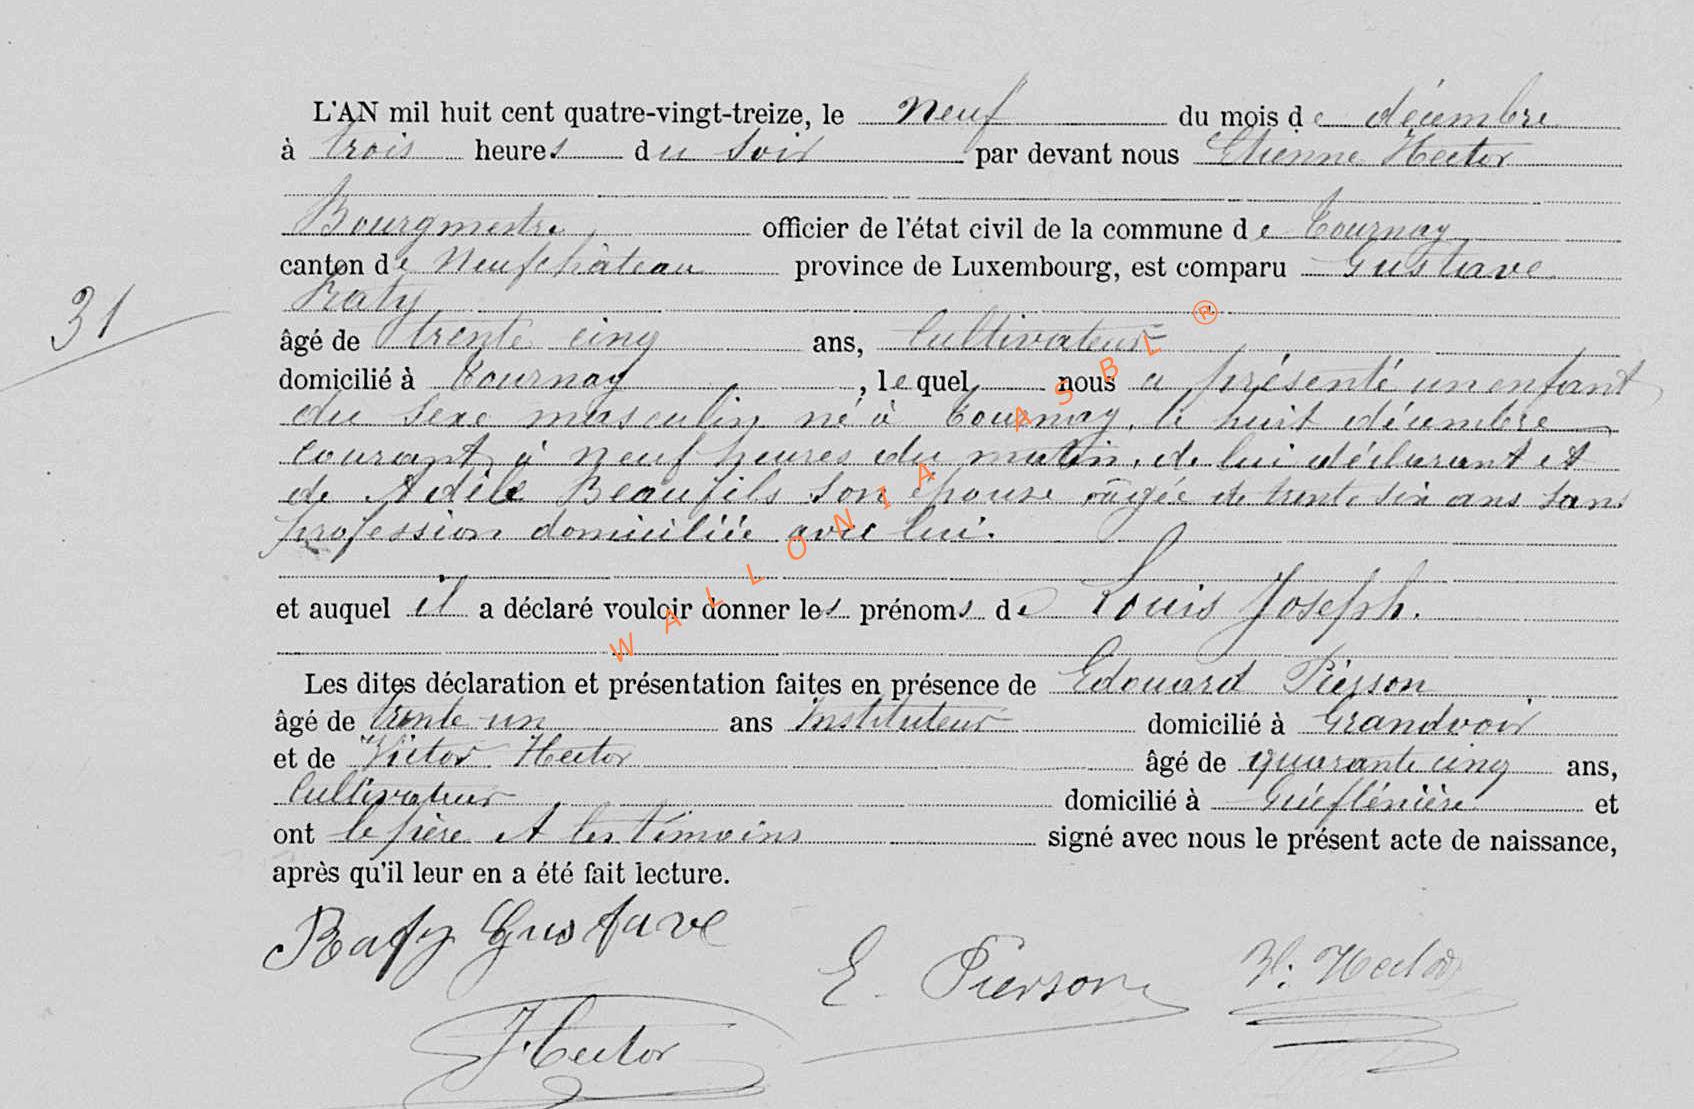 L'AN mil huit cent quatre-vingt-treize, le neuf du mois de décembre
à trois heures du soir par devant nous Etienne Hector
Bourgmestre officier de l'état civil de la commune de Tournay
canton de Neufchâteau province de Luxembourg, est comparu Gustave
Raty
31
âgé de trente cinq ans, Cultivateur
domicilié à Tournay, lequel nous a présenté un enfant
du sexe masculin né à Tournay, le huit décembre
courant, à neuf heures du matin, de lui déclarant et
de Adèle Beaufils son épouse âgée de trente six ans sans
profession domiciliée avec lui.
et auquel il a déclaré vouloir donner les prénoms de Louis Joseph.
Les dites déclaration et présentation faites en présence de Edouard Pierson
âgé de trente un ans Instituteur domicilié à Grandvoir
et de Victor Hector âgé de quarante cinq ans,
Cultivateur domicilié à et
ont le père et les témoins signé avec nous le présent acte de naissance,
après qu'il leur en a été fait lecture.
Raty Gustave
E. Pierson V. Hector
Hector
WALLONIA ASBL ®